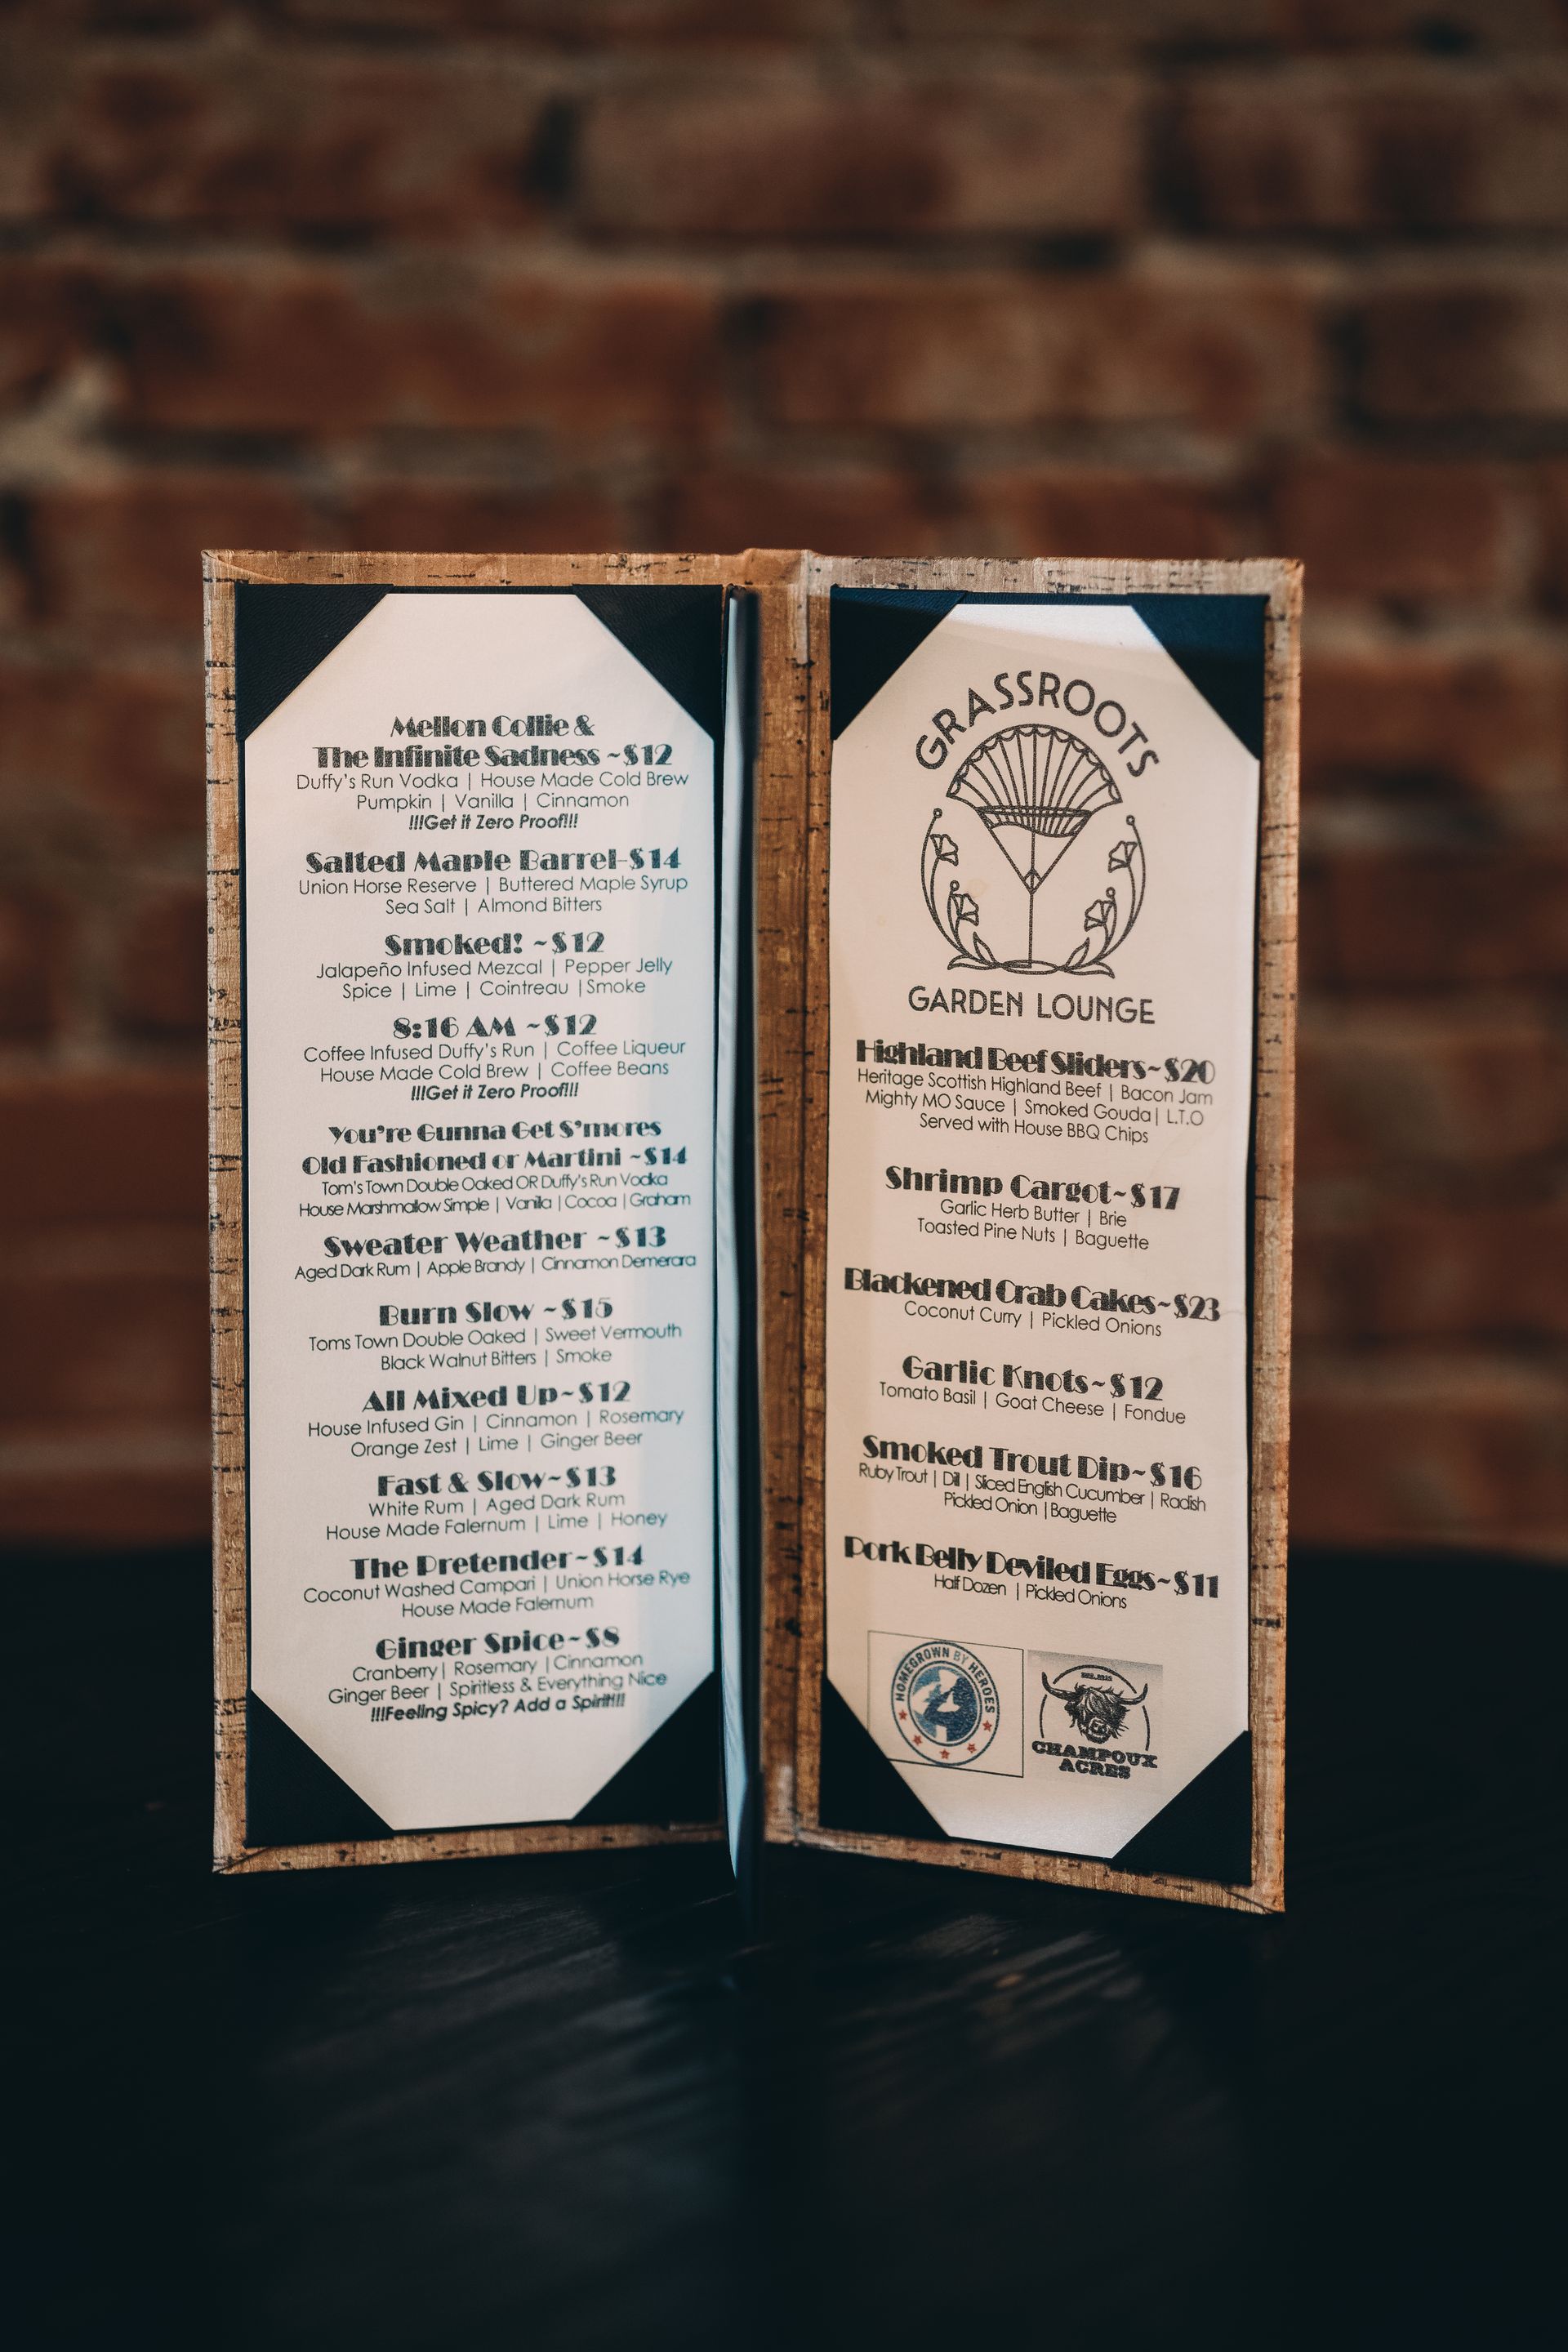 Mellon Collie &
The Infinite Sadness ~$12
Duffy's Run Vodka | House Made Cold Brew
Pumpkin | Vanilla | Cinnamon
!!!Get it Zero Proof!!!
Salted Maple Barrel-$14
Union Horse Reserve | Buttered Maple Syrup
Sea Salt | Almond Bitters
Smoked! ~$12
Jalapeño Infused Mezcal | Pepper Jelly
Spice | Lime | Cointreau |Smoke
8:16 AM ~$12
Coffee Infused Duffy's Run | Coffee Liqueur
House Made Cold Brew | Coffee Beans
!!!Get it Zero Proof!!!
You're Gunna Get S'mores
Old Fashioned or Martini ~$14
Tom's Town Double Oaked OR Duffy's Run Vodka
House Marshmallow Simple | Vanilla | Cocoa | Graham
Sweater Weather ~$13
Aged Dark Rum | Apple Brandy | Cinnamon Demerara
Burn Slow ~$15
Toms Town Double Oaked | Sweet Vermouth
Black Walnut Bitters | Smoke
All Mixed Up~$12
House Infused Gin | Cinnamon | Rosemary
Orange Zest | Lime | Ginger Beer
Fast & Slow~$13
White Rum | Aged Dark Rum
House Made Falernum | Lime | Honey
The Pretender~$14
Coconut Washed Campari | Union Horse Rye
House Made Falernum
Ginger Spice~$8
Cranberry| Rosemary |Cinnamon
Ginger Beer | Spiritless & Everything Nice
!!!Feeling Spicy? Add a Spirit!!!
GRASSROOTS
GARDEN LOUNGE
Highland Beef Sliders~$20
Heritage Scottish Highland Beef | Bacon Jam
Mighty MO Sauce | Smoked Gouda| L.T.O
Served with House BBQ Chips
Shrimp Cargot~$17
Garlic Herb Butter | Brie
Toasted Pine Nuts | Baguette
Blackened Crab Cakes~$23
Coconut Curry | Pickled Onions
Garlic Knots~$12
Tomato Basil | Goat Cheese | Fondue
Smoked Trout Dip~$16
Ruby Trout | Dill | Sliced English Cucumber | Radish
Pickled Onion |Baguette
Pork Belly Deviled Eggs~$11
Half Dozen | Pickled Onions
HOMEGROWN BY HEROES
CHAMPOUX
ACRES